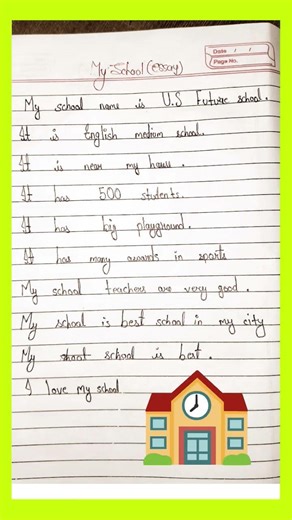 Date / /
Page No.
My School (essay)
My school name is U.S Future school.
It is English medium school.
It is near my house.
It has 500 students.
It has big playground.
It has many awards in sports
My school teachers are very good.
My school is best school in my city
My school is best.
I love my school